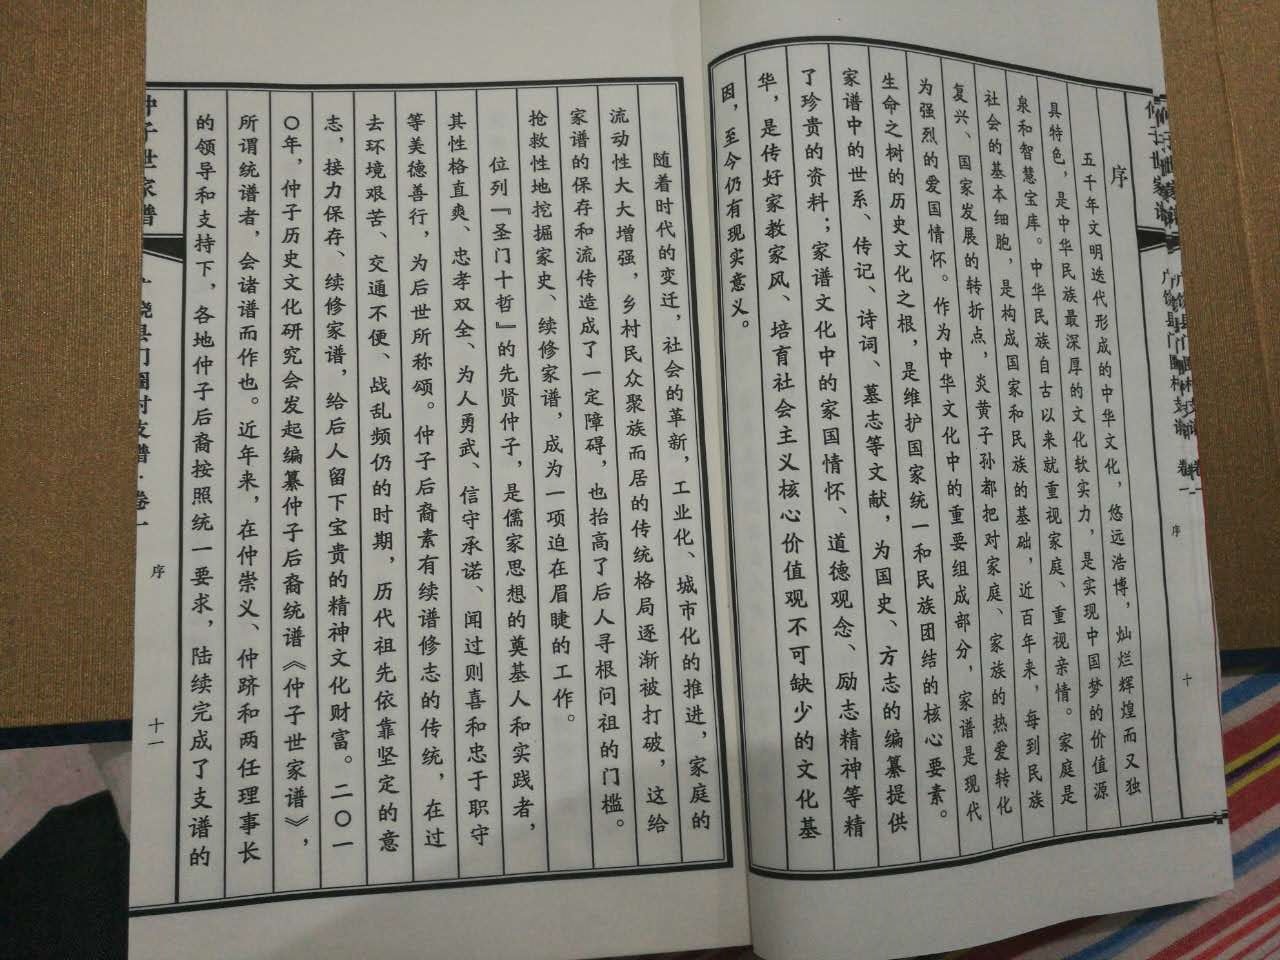 序
五千年文明迭代形成的中华文化，悠远浩博，灿烂辉煌而又独
具特色，是中华民族最深厚的文化软实力，是实现中国梦的价值源
泉和智慧宝库。中华民族自古以来就重视家庭、重视亲情。家庭是
社会的基本细胞，是构成国家和民族的基础，近百年来，每到民族
复兴、国家发展的转折点，炎黄子孙都把对家庭、家族的热爱转化
为强烈的爱国情怀。作为中华文化中的重要组成部分，家谱是现代
生命之树的历史文化之根，是维护国家统一和民族团结的核心要素。
家谱中的世系、传记、诗词、墓志等文献，为国史、方志的编纂提供
了珍贵的资料；家谱文化中的家国情怀、道德观念、励志精神等精
华，是传好家教家风、培育社会主义核心价值观不可缺少的文化基
因，至今仍有现实意义。
序
十
随着时代的变迁，社会的革新，工业化、城市化的推进，家庭的
流动性大大增强，乡村民众聚族而居的传统格局逐渐被打破，这给
家谱的保存和流传造成了一定障碍，也抬高了后人寻根问祖的门槛。
抢救性地挖掘家史、续修家谱，成为一项迫在眉睫的工作。
位列『圣门十哲』的先贤仲子，是儒家思想的奠基人和实践者，
其性格直爽、忠孝双全、为人勇武、信守承诺、闻过则喜和忠于职守
等美德善行，为后世所称颂。仲子后裔素有续谱修志的传统，在过
去环境艰苦、交通不便、战乱频仍的时期，历代祖先依靠坚定的意
志，接力保存、续修家谱，给后人留下宝贵的精神文化财富。二〇一
〇年，仲子历史文化研究会发起编纂仲子后裔统谱《仲子世家谱》，
所谓统谱者，会诸谱而作也。近年来，在仲崇义、仲跻和两任理事长
的领导和支持下，各地仲子后裔按照统一要求，陆续完成了支谱的
仲子世家谱
饶县门圈村支谱·卷一
序
十一